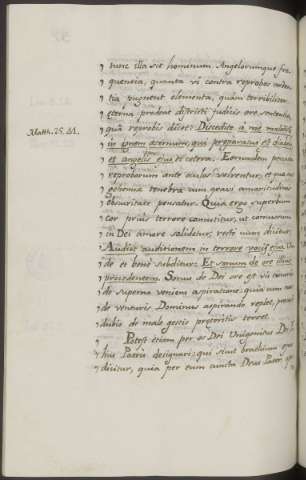 tunc illa sit hominum Angelorumque fre
quencia, quanta vi contra reprobos arden
tia pugnent elementa, quàm terribiliter
æterna prodeat districti judicis ore sententia
quâ reprobis dicet: Discedite a me maledicti
Matth. 25. 41.
in ignem aeternum, qui praeparatus est diabolo
et angelis ejus et cetera. Eorumdem poena
reproborum ante oculos
gehennae tenebra cum gravi amaritudinis
obscuritate pensatur. Quia ergo superbum
cor prius terrore concutitur, ut concussum
in Dei amore solidetur, recte nunc dicitur:
Audite auditionem in terrore vocis ejus. Un
de et bene subditur: Et sonum de ore illius
procedentem. Sonus de Dei ore est vis timoris
de superna veniens aspiratione: quia cum nos
de venturis Dominus aspirando replet, procul
dubio de male gestis praeteritis terret.
Potest etiam per os Dei Unigenitus
lius Patris designari: qui sicut brachium ejus
dicitur, quia per eum cuncta Deus Pater